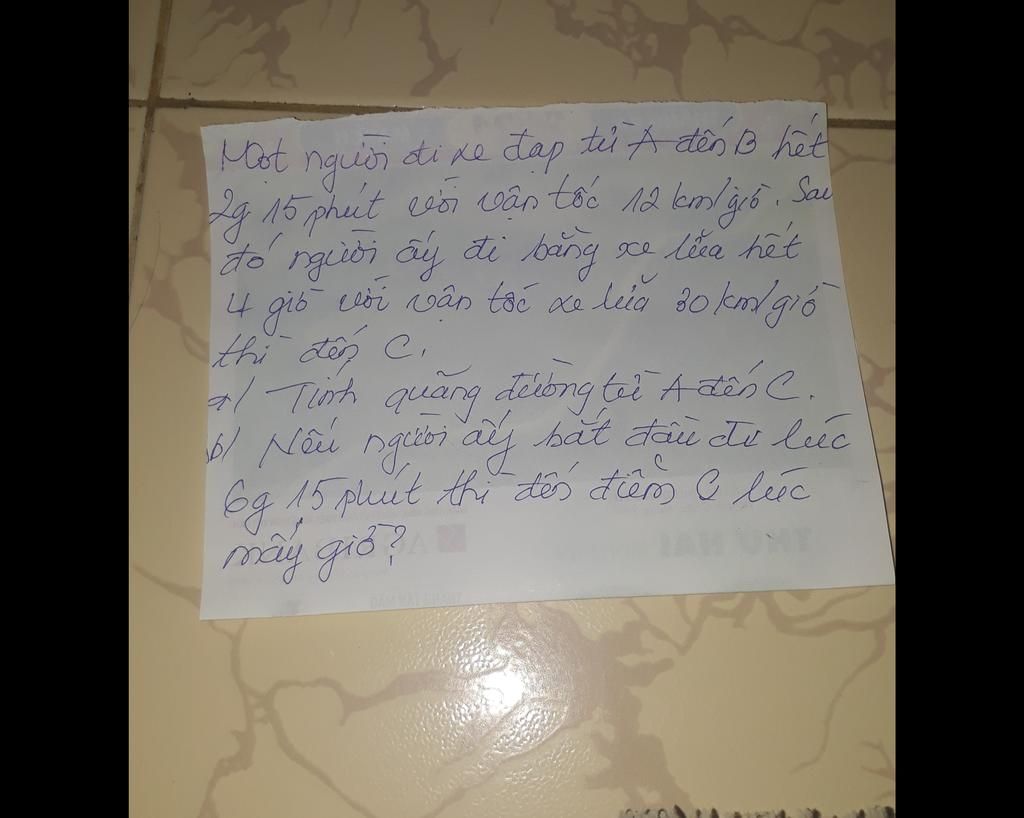 Một người đi xe đạp từ A đến B hết
2g 15 phút với vận tốc 12 km/giờ. Sau
đó người ấy đi bằng xe lửa hết
4 giờ với vận tốc xe lửa 30 km/giờ
thì đến C.
a/ Tính quãng đường từ A đến C.
b/ Nếu người ấy bắt đầu đi lúc
6g 15 phút thì đến điểm C lúc
mấy giờ?
THỨ HAI